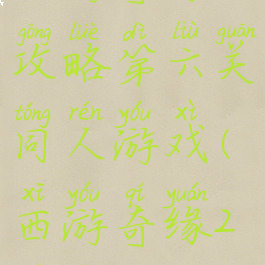 gōng lüè dì liù guān
攻略第六关
tóng rén yóu xì
同人游戏(
xī yóu qí yuán
西游奇缘2